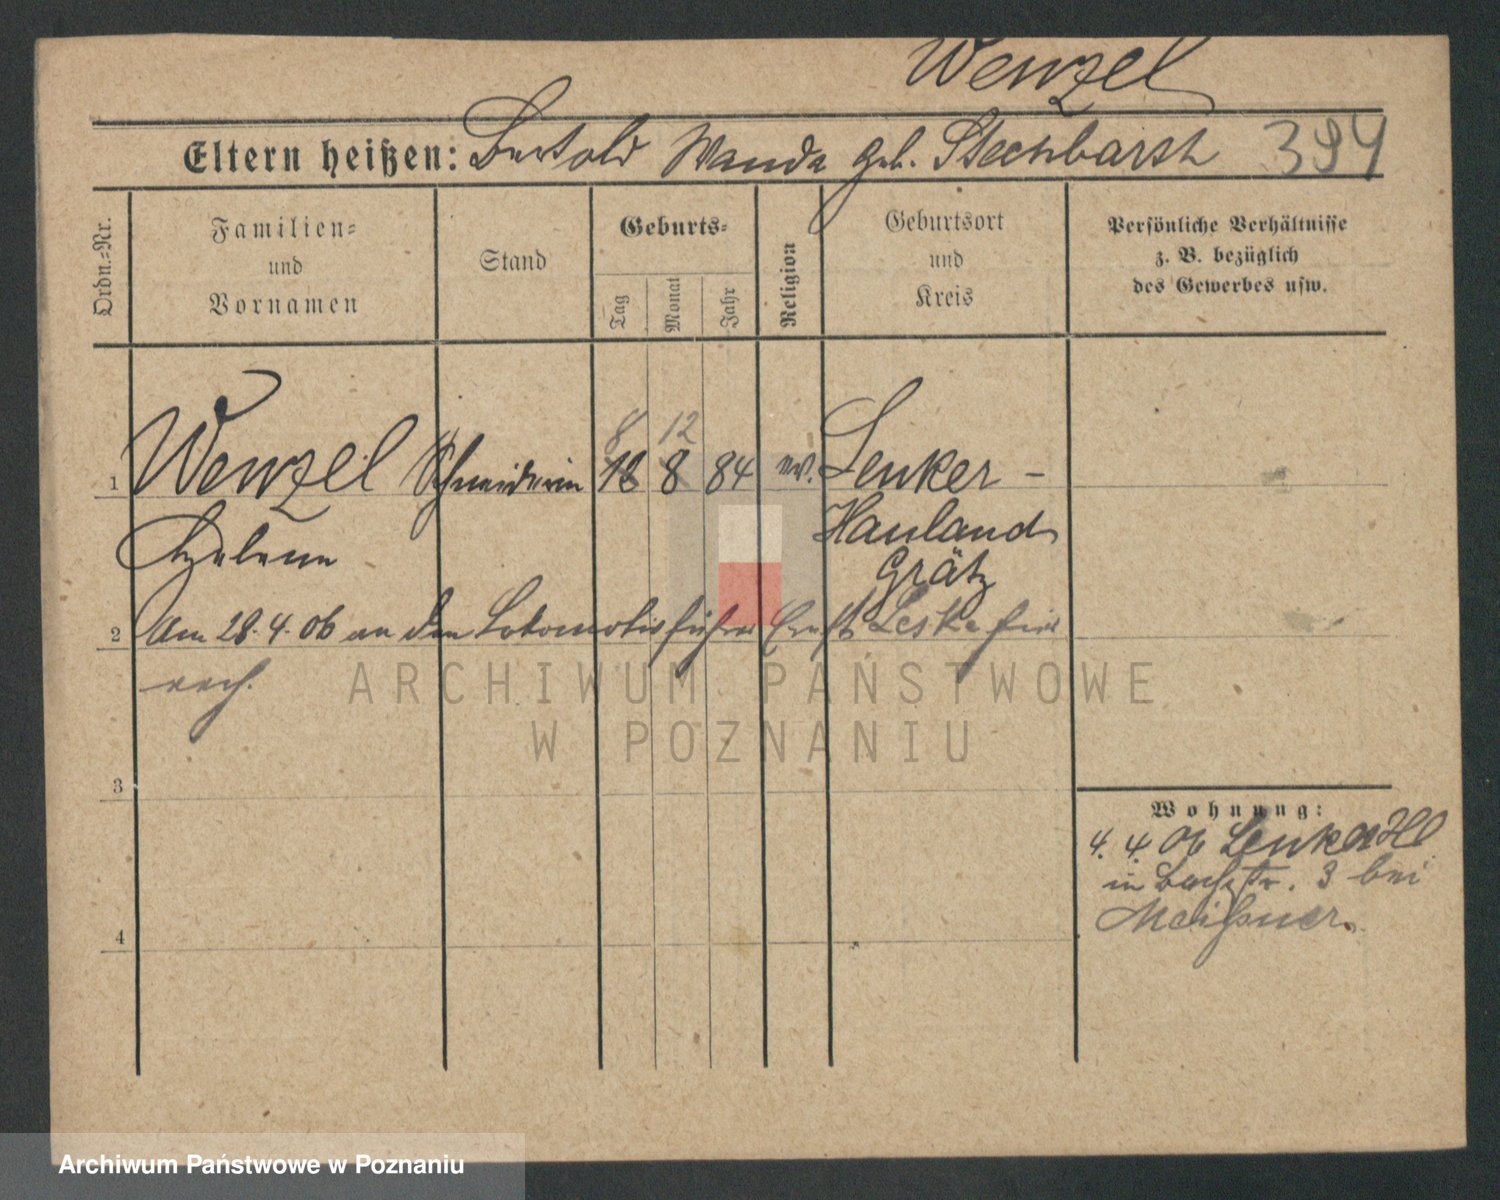 Wenzel
Eltern heißen: Bertold Wanda geb. Stechbarth 394
Ordn.-Nr.
Familien-
und
Vornamen
Stand
Geburts-
Tag
Monat
Jahr
Religion
Geburtsort
und
Kreis
Persönliche Verhältnisse
z. B. bezüglich
des Gewerbes usw.
8 12
1 Wenzel Schneiderin 18 8 84 ev. Lenker-
Hauland
Helene
Grätz
2 Am 28.4.06 an den Lokomotivführer Ernst Leske hier
verh.
ARCHIWUM PAŃSTWOWE
W POZNANIU
3
Wohnung:
4. 4. 06 Lenker Hl
in 3 bei
Meißner.
4
Archiwum Państwowe w Poznaniu